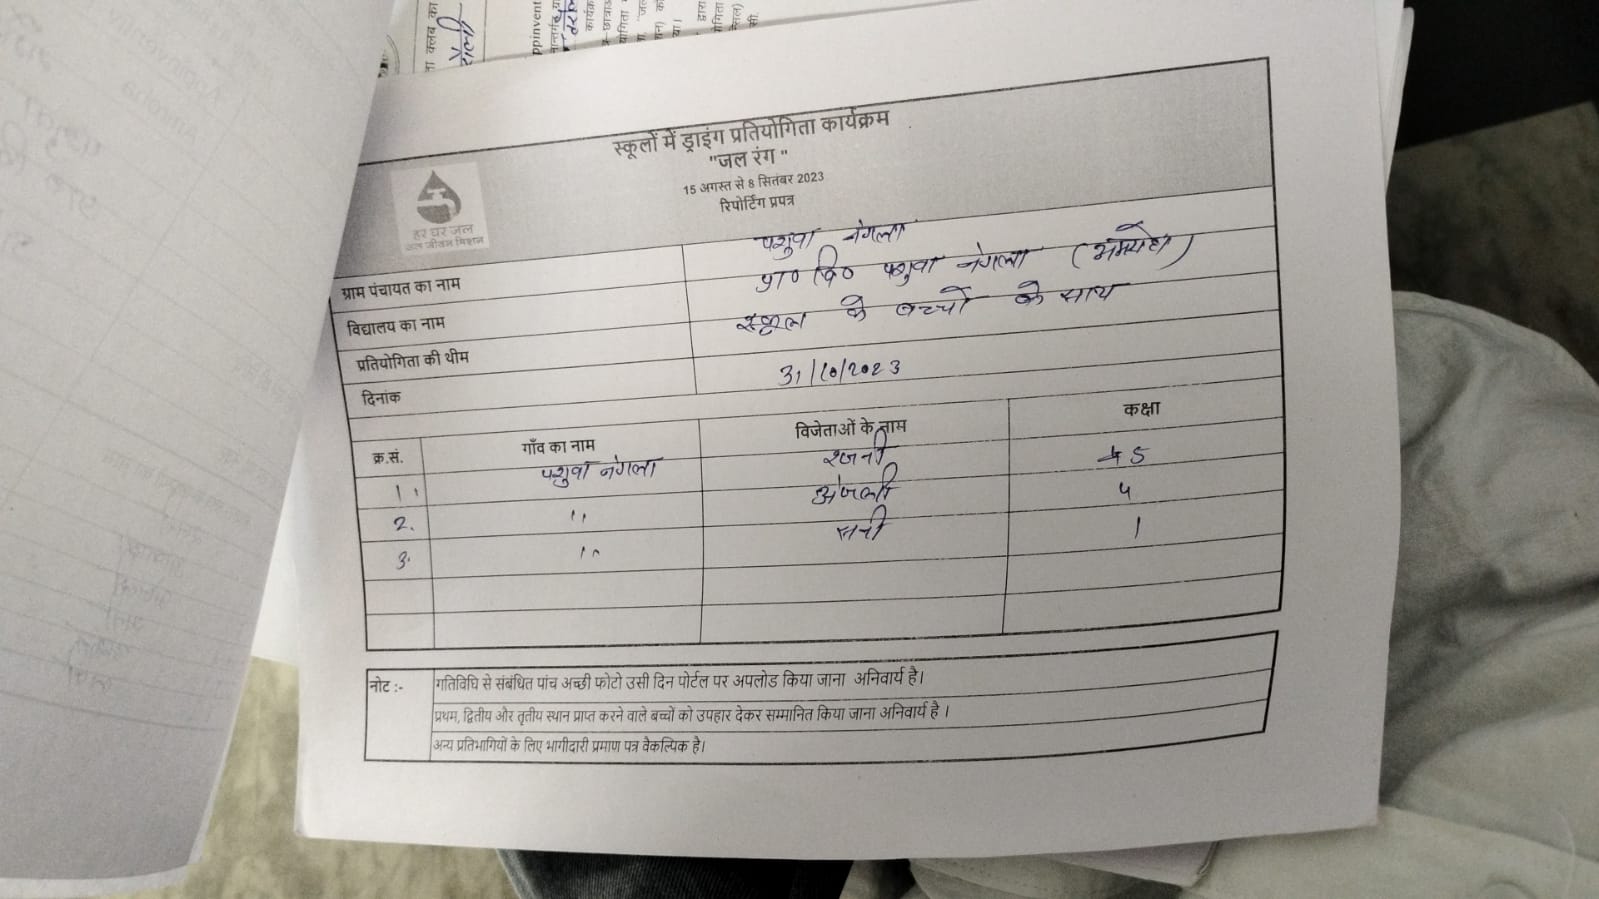 स्कूलों में ड्राइंग प्रतियोगिता कार्यक्रम
"जल रंग "
15 अगस्त से 8 सितंबर 2023
रिपोर्टिंग प्रपत्र
हर घर जल
जल जीवन मिशन
ग्राम पंचायत का नाम पशुवा नंगला
विद्यालय का नाम प्रा० वि० पशुवा नंगला (अमरोहा)
प्रतियोगिता की थीम स्कूल के बच्चों के साथ
दिनांक 31/10/2023
क्र.सं. गाँव का नाम विजेताओं के नाम कक्षा
1. पशुवा नंगला रजनी 5
2. " अंजली 4
3. " 1
नोट :- गतिविधि से संबंधित पांच अच्छी फोटो उसी दिन पोर्टल पर अपलोड किया जाना अनिवार्य है।
प्रथम, द्वितीय और तृतीय स्थान प्राप्त करने वाले बच्चों को उपहार देकर सम्मानित किया जाना अनिवार्य है ।
अन्य प्रतिभागियों के लिए भागीदारी प्रमाण पत्र वैकल्पिक है।